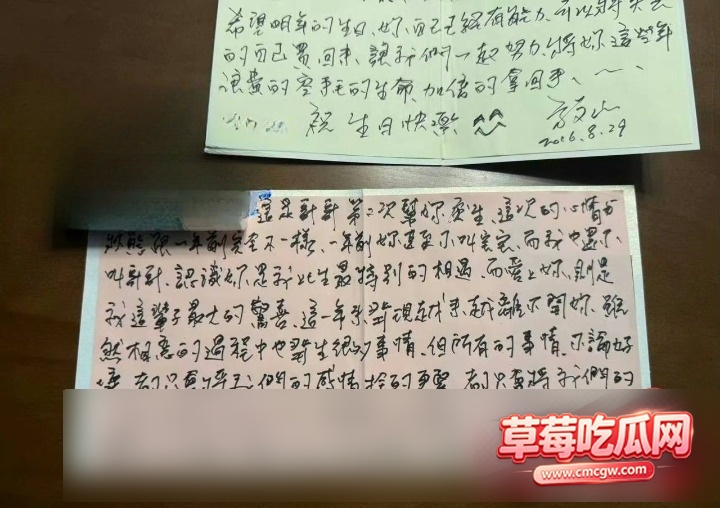 希望明年的生日,妳,而已已經有能力,可以將失去
的而已買回來,讓我們一起努力,將妳這些年
浪費的空手毛的生命,加倍的拿回手、~、
祝 生日快樂 ^^
2016.8.29
這是哥哥第二次幫妳慶生,這次的心情与
狀態跟一年前完全不一樣,一年前妳甚至不叫寶寶,而我也還不
叫哥哥,認識妳是我此生最特別的相遇,而愛上妳,則是
我這輩子最大的驚喜,這一年來,對現越來越離不開妳,雖
然相戀的過程中也發生很多事情,但所有的事情,不論好
壞,都只要將我們的感情拴的更緊,都只要將我們的
草莓吃瓜网
www.cmcgw.com